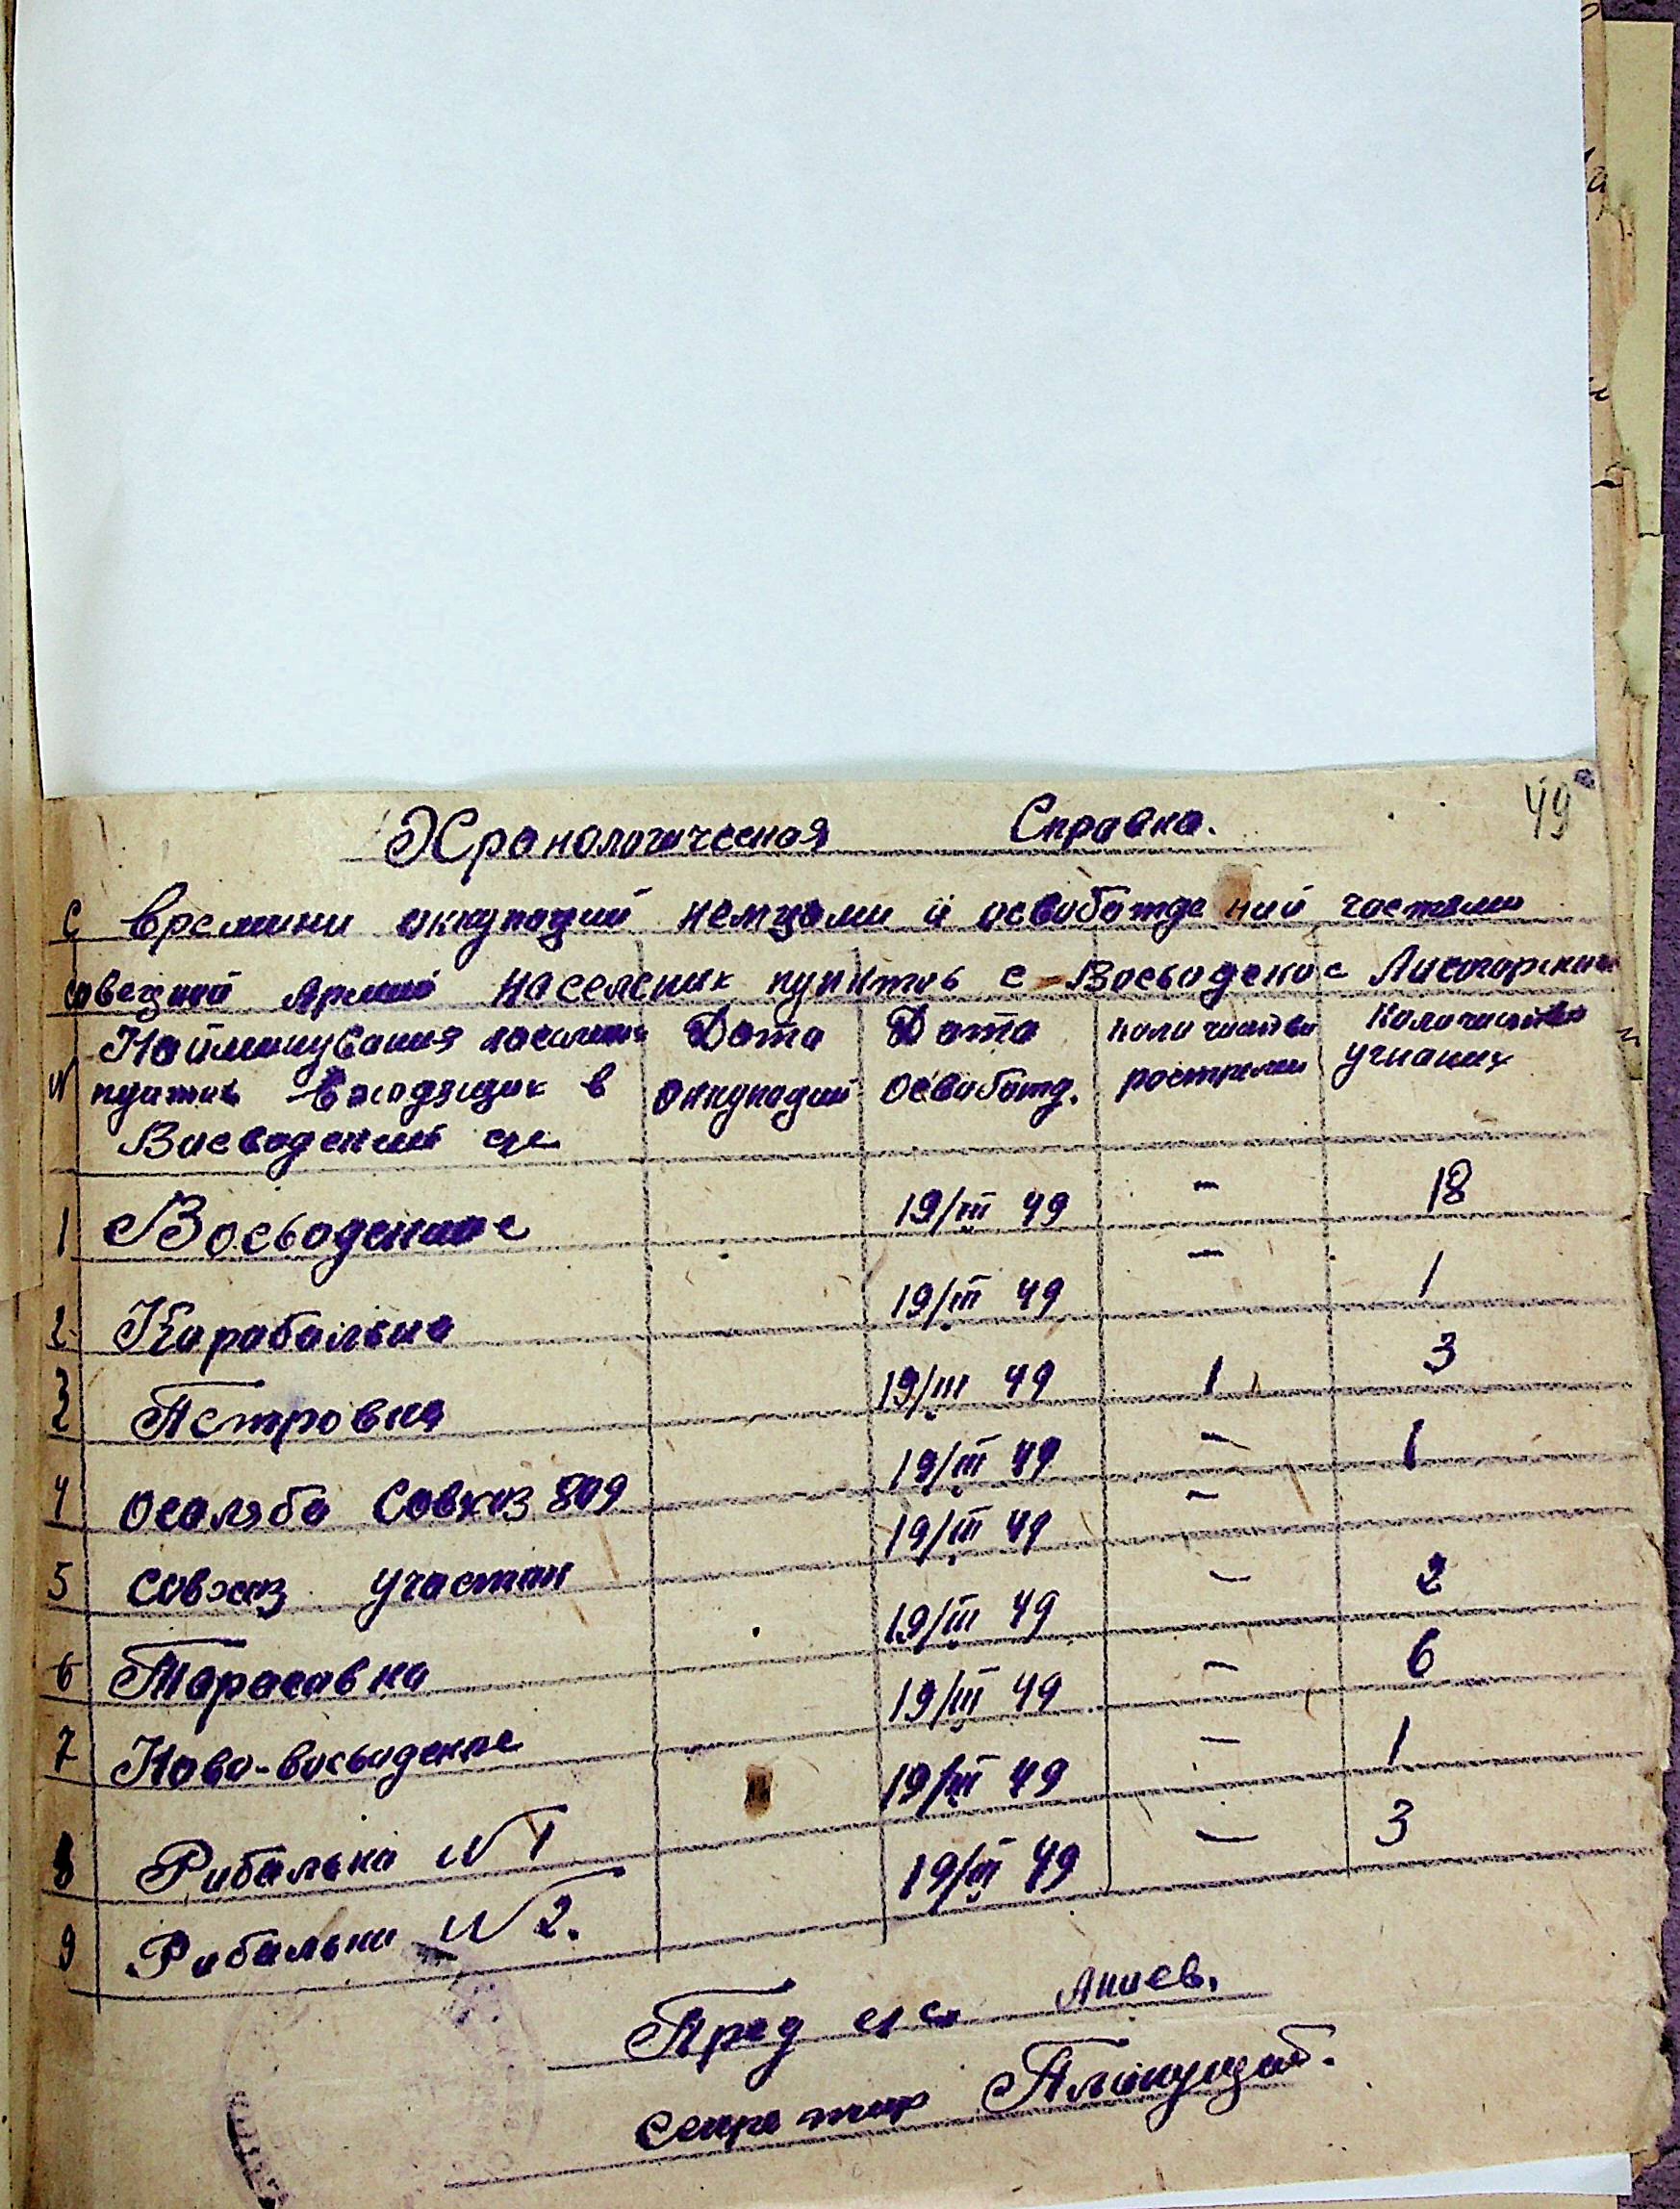 49
Хранологическая Справка.
С времини оккупаций немцами и освобождений частями
Совецкой Армий населених пунктов с-Восьоденое Лисогорский
N Найминування населених пунтов входящих в Восводский с/с Дота оккупаций Дота освобожд. Количиство ростреляи Количиство угнаних
1 Восьоденное 19/III 44 – 18
2 Карабельна 19/III 44 – 1
3 Петровка 19/III 44 1 3
4 Осаляба Совхоз 809 19/III 44 – 1
5 Совхоз участак 19/III 44 –
6 Тарасавка 19/III 44 – 2
7 Ново-восьоденое 19/III 44 – 6
8 Рибалька N 1 19/III 44 – 1
9 Рибальки N 2. 19/III 44 – 3
Пред с/с
секретар